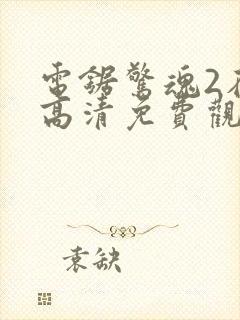 電鋸驚魂2
高清免費觀
袁缺